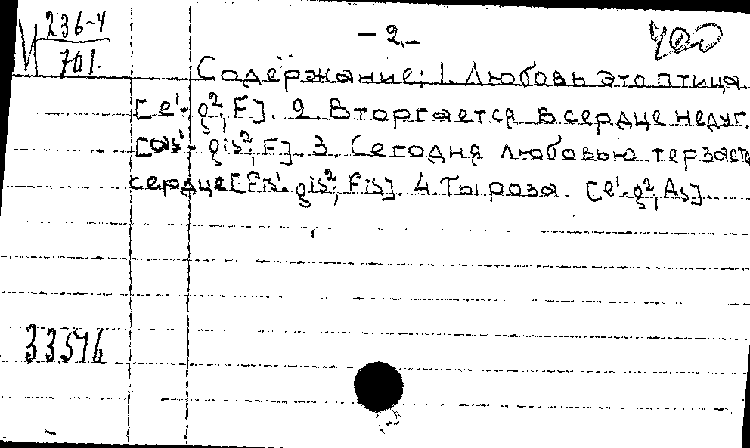 М 236-4
701.
– 2. –
Содержание: 1. Любовь это птица.
[e¹-g², F]. 2. Вторгается в сердце недуг.
gis², F]. 3. Сегодня любовью терзаеть
сердце [Fis¹-gis², Fis]. 4. Ты роза. [e¹-g², As].
33576